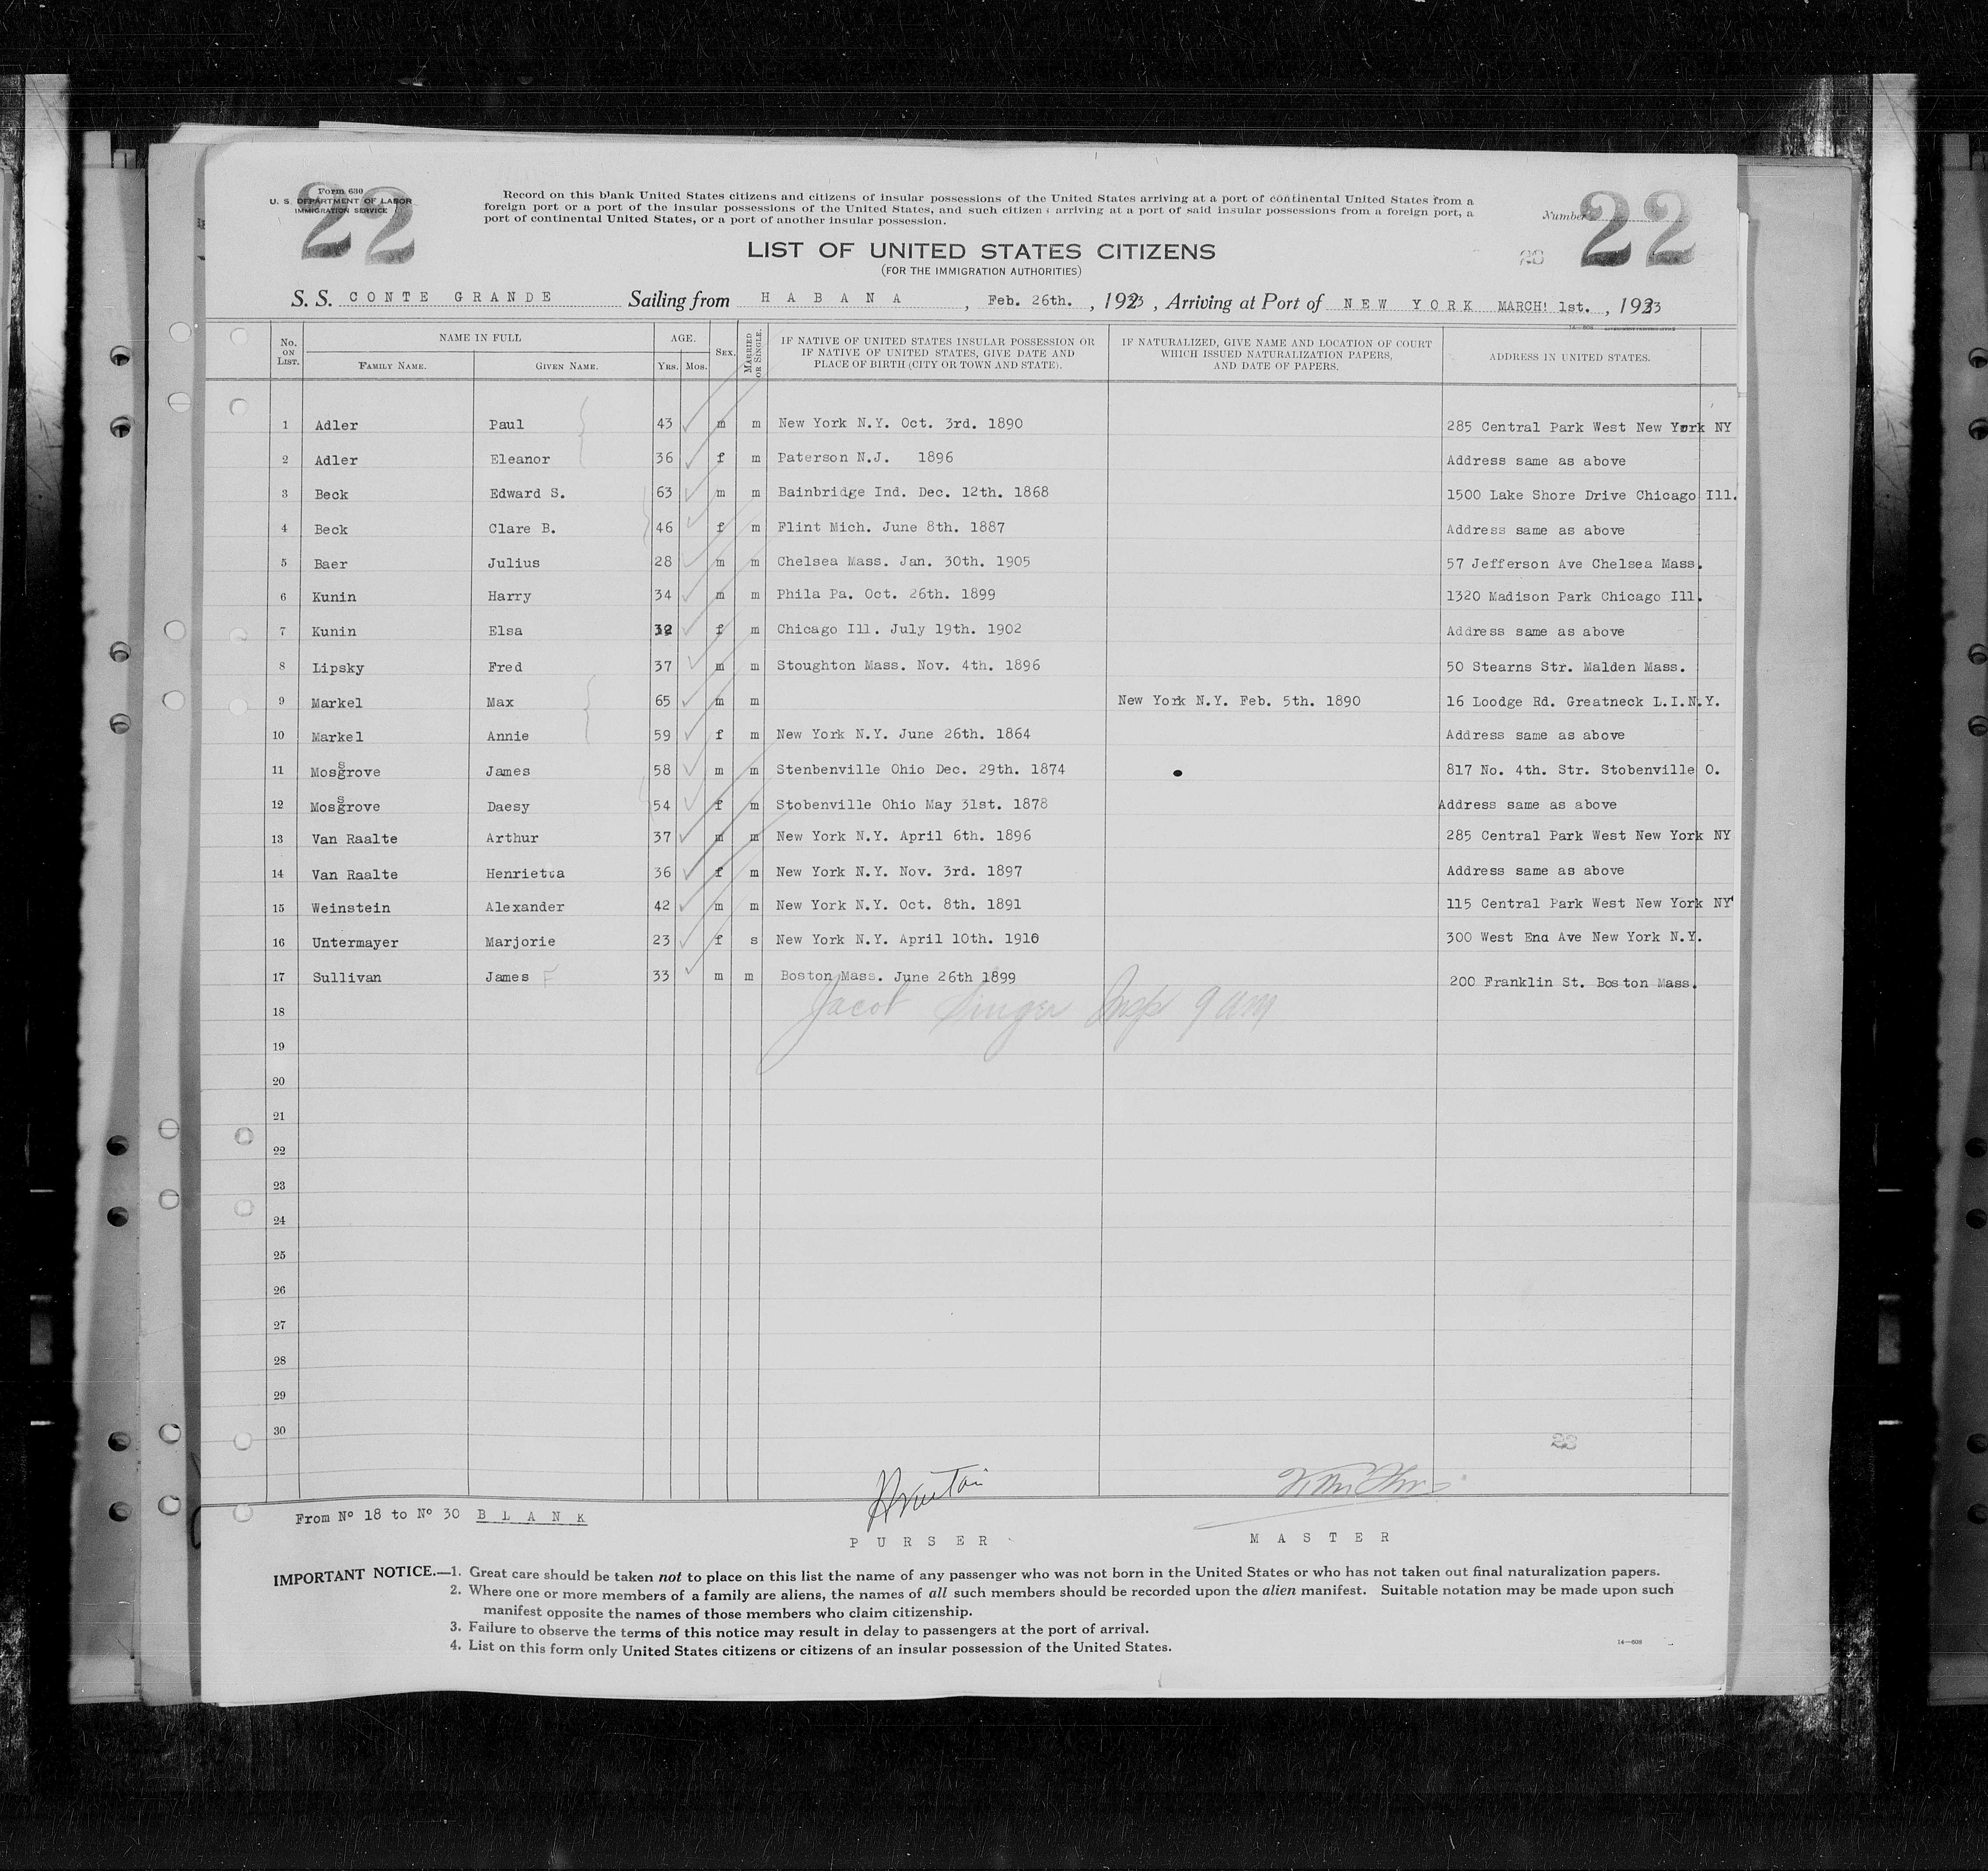 Form 630
U. S. DEPARTMENT OF LABOR
IMMIGRATION SERVICE
22
Record on this blank United States citizens and citizens of insular possessions of the United States arriving at a port of continental United States from a
foreign port or a port of the insular possessions of the United States, and such citizens arriving at a port of said insular possessions from a foreign port, a
port of continental United States, or a port of another insular possession.
Number 22
LIST OF UNITED STATES CITIZENS
(FOR THE IMMIGRATION AUTHORITIES)
S. S. CONTE GRANDE Sailing from HABANA, Feb. 26th., 1933, Arriving at Port of NEW YORK MARCH! 1st., 1933
No. ON LIST. NAME IN FULL FAMILY NAME. GIVEN NAME. AGE. YRS. MOS. SEX. MARRIED OR SINGLE. IF NATIVE OF UNITED STATES INSULAR POSSESSION OR IF NATIVE OF UNITED STATES, GIVE DATE AND PLACE OF BIRTH (CITY OR TOWN AND STATE). IF NATURALIZED, GIVE NAME AND LOCATION OF COURT WHICH ISSUED NATURALIZATION PAPERS, AND DATE OF PAPERS. ADDRESS IN UNITED STATES.
1 Adler Paul 43 m m New York N.Y. Oct. 3rd. 1890 285 Central Park West New York NY
2 Adler Eleanor 36 f m Paterson N.J. 1896 Address same as above
3 Beck Edward S. 63 m m Bainbridge Ind. Dec. 12th. 1868 1500 Lake Shore Drive Chicago Ill.
4 Beck Clare B. 46 f m Flint Mich. June 8th. 1887 Address same as above
5 Baer Julius 28 m m Chelsea Mass. Jan. 30th. 1905 57 Jefferson Ave Chelsea Mass.
6 Kunin Harry 34 m m Phila Pa. Oct. 26th. 1899 1320 Madison Park Chicago Ill.
7 Kunin Elsa f m Chicago Ill. July 19th. 1902 Address same as above
8 Lipsky Fred 37 m m Stoughton Mass. Nov. 4th. 1896 50 Stearns Str. Malden Mass.
9 Markel Max 65 m m New York N.Y. Feb. 5th. 1890 16 Loodge Rd. Greatneck L.I.N.Y.
10 Markel Annie 59 f m New York N.Y. June 26th. 1864 Address same as above
11 Mossgrove James 58 m m Stenbenville Ohio Dec. 29th. 1874 817 No. 4th. Str. Stobenville O.
12 Mossgrove Daesy 54 f m Stobenville Ohio May 31st. 1878 Address same as above
13 Van Raalte Arthur 37 m m New York N.Y. April 6th. 1896 285 Central Park West New York NY
14 Van Raalte Henrietta 36 f m New York N.Y. Nov. 3rd. 1897 Address same as above
15 Weinstein Alexander 42 m m New York N.Y. Oct. 8th. 1891 115 Central Park West New York NY
16 Untermayer Marjorie 23 f s New York N.Y. April 10th. 1910 300 West End Ave New York N.Y.
17 Sullivan James F 33 m m Boston Mass. June 26th 1899 200 Franklin St. Boston Mass.
18 Jacob Singer Insp 9 am
19
20
21
22
23
24
25
26
27
28
29
30
From Nº 18 to Nº 30 BLANK
PURSER MASTER
IMPORTANT NOTICE.—1. Great care should be taken not to place on this list the name of any passenger who was not born in the United States or who has not taken out final naturalization papers.
2. Where one or more members of a family are aliens, the names of all such members should be recorded upon the alien manifest. Suitable notation may be made upon such
manifest opposite the names of those members who claim citizenship.
3. Failure to observe the terms of this notice may result in delay to passengers at the port of arrival.
4. List on this form only United States citizens or citizens of an insular possession of the United States.
14—608